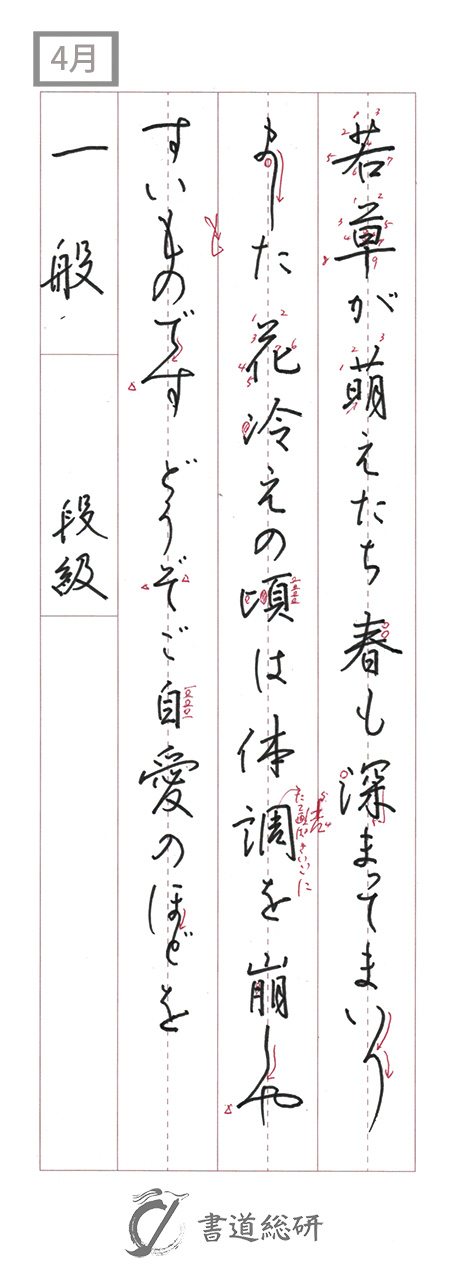 4月
若草が萌えたち春も深まってまいり
ました花冷えの頃は体調を崩しや
すいものですどうぞご自愛のほどを
一般
段級
たて画はさいごに
書道総研